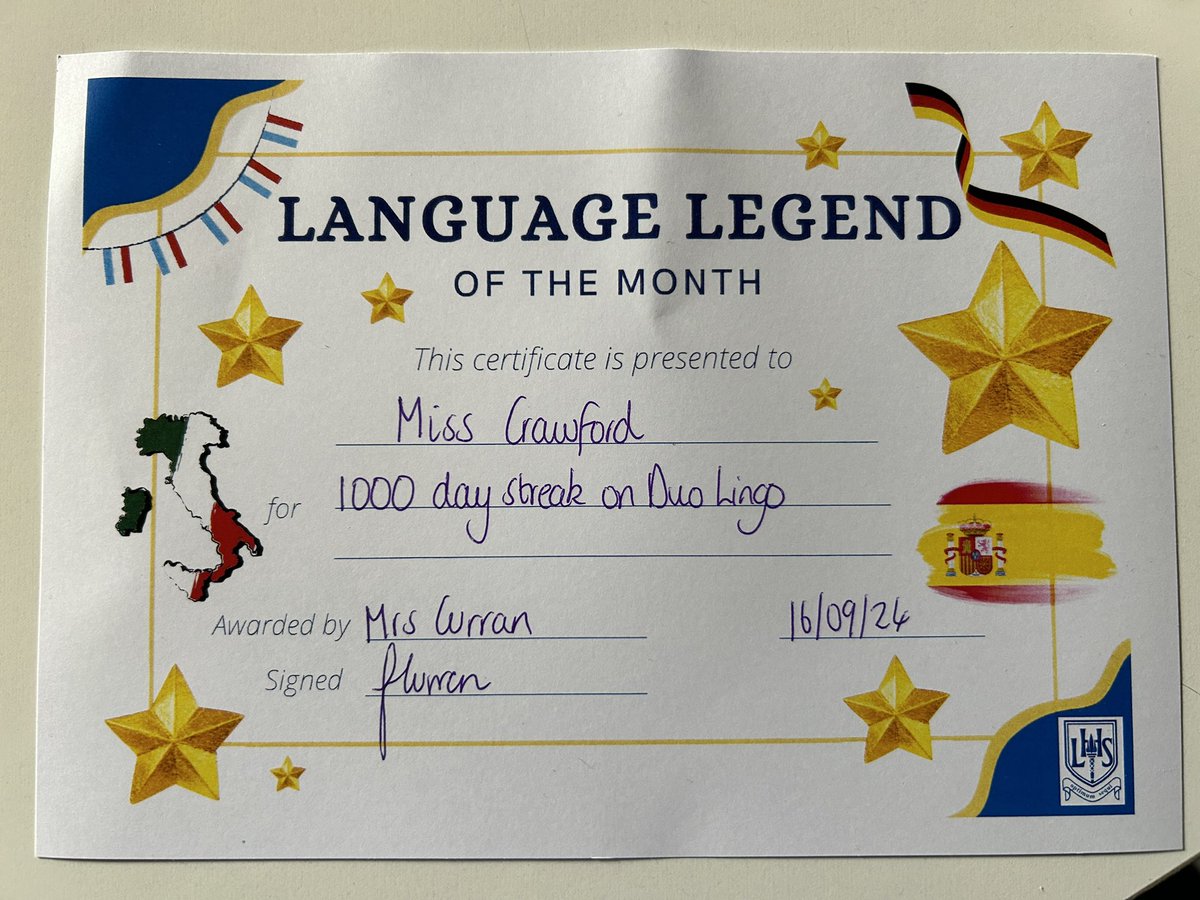 LANGUAGE LEGEND
OF THE MONTH
This certificate is presented to
Miss Crawford
for 1000 day streak on Duo Lingo
Awarded by Mrs Curran 16/09/24
Signed
LHS
optimum sequi